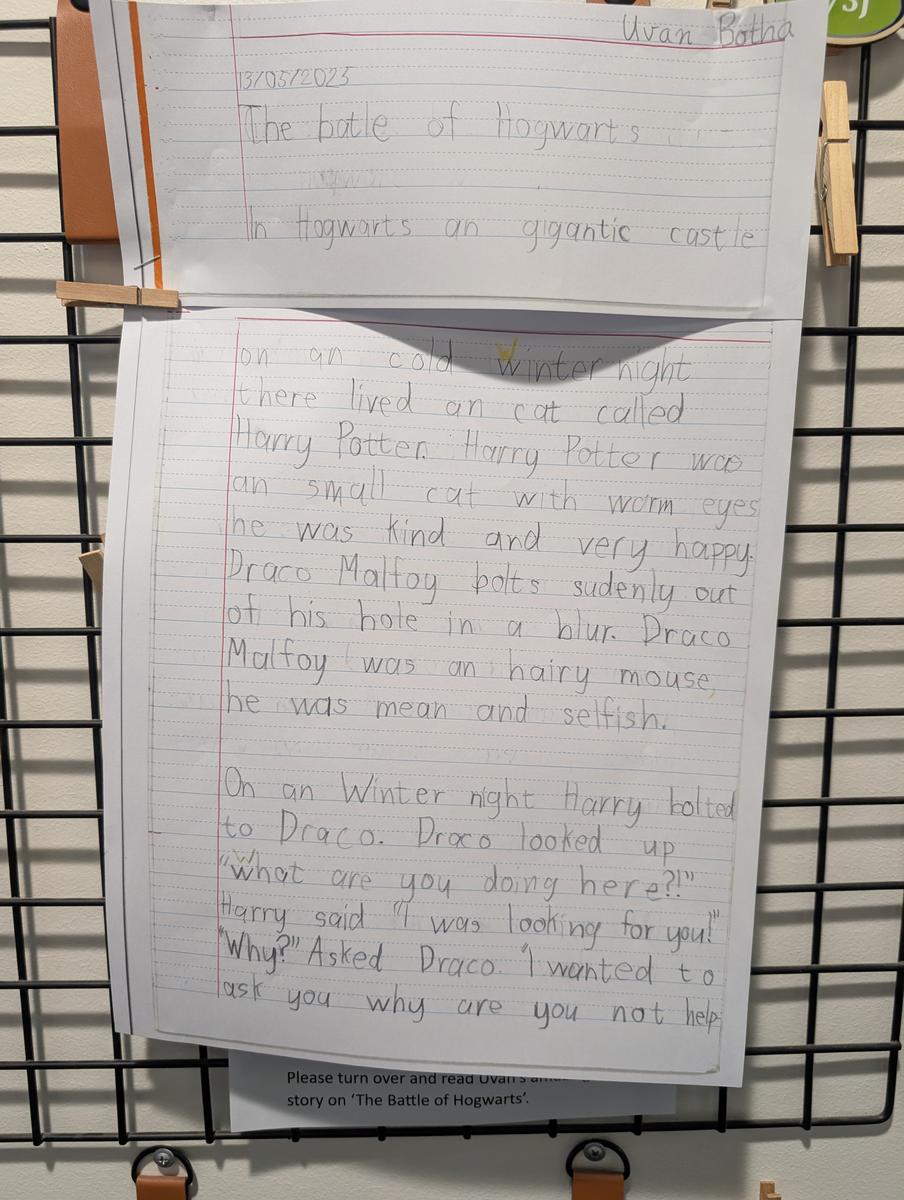 Uvan Botha
13/05/2025
The batle of Hogwarts
In Hogwarts an gigantic castle
on an cold Winter night
there lived an cat called
Harry Potter. Harry Potter was
an small cat with worm eyes
he was kind and very happy.
Draco Malfoy bolts sudenly out
of his hole in a blur. Draco
Malfoy was an hairy mouse,
he was mean and selfish.
On an Winter night Harry bolted
to Draco. Draco looked up
"What are you doing here?!"
Harry said "I was looking for you!"
"Why?" Asked Draco. "I wanted to
ask you why are you not help
Please turn over and read Uvan's
story on 'The Battle of Hogwarts'.